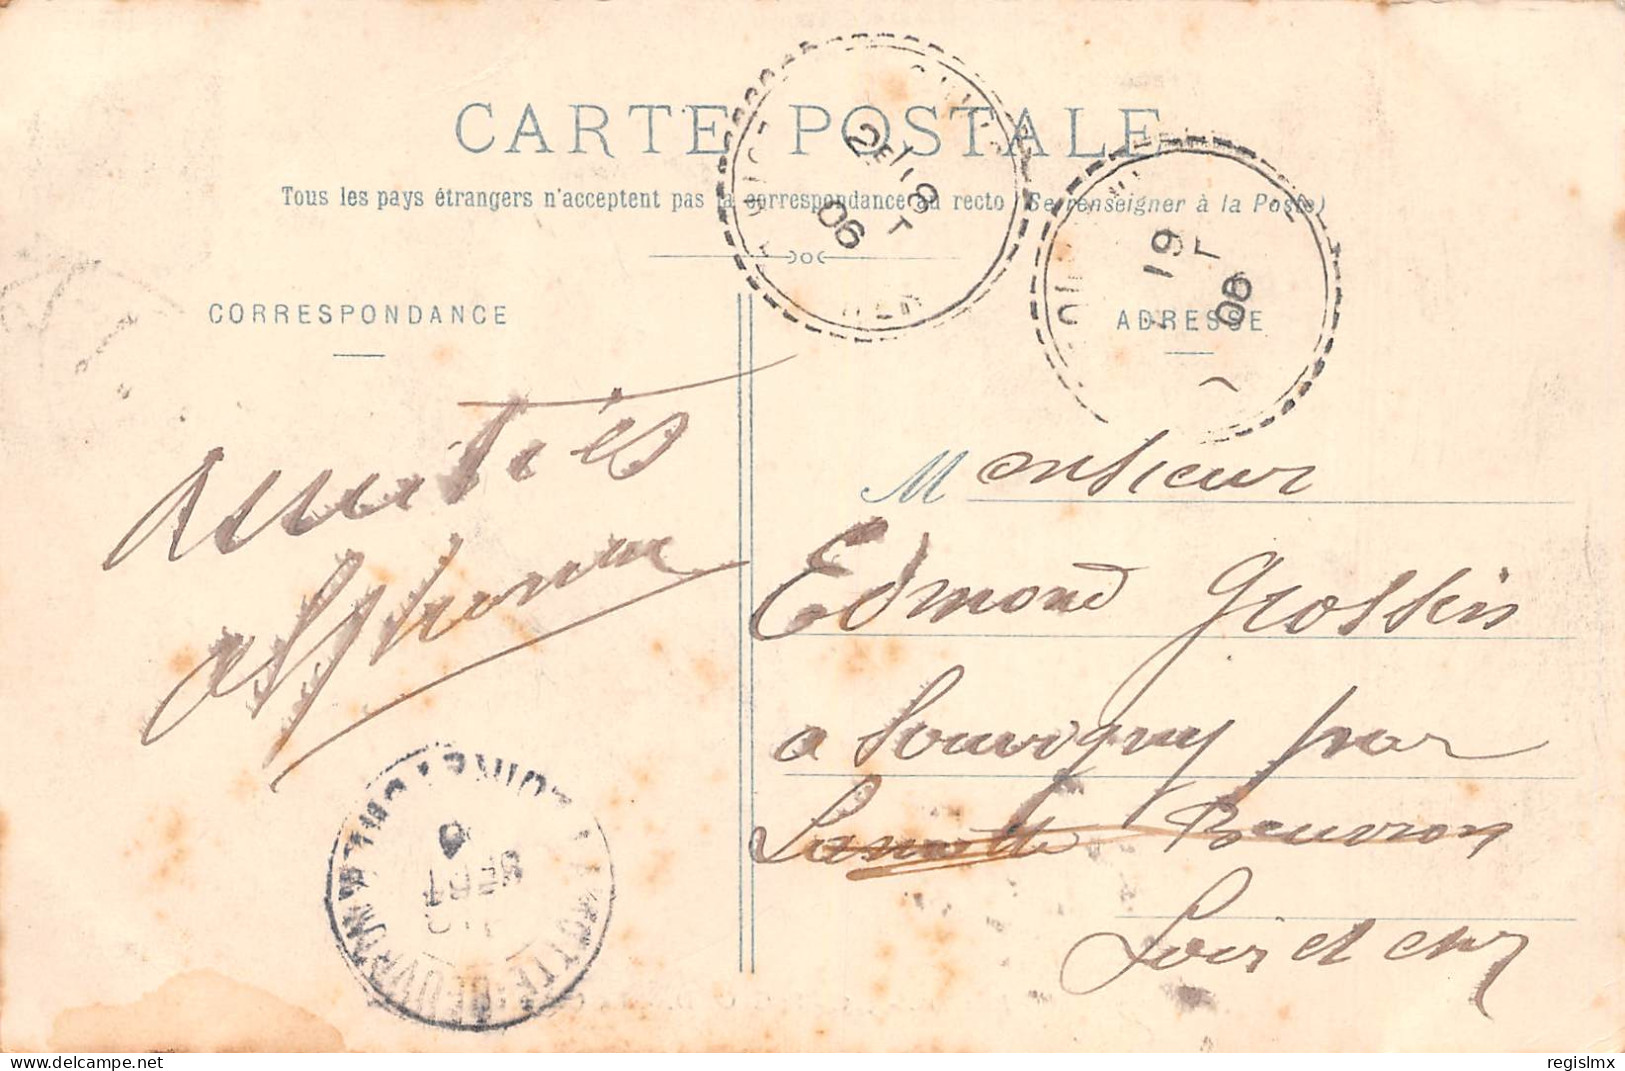 CARTE POSTALE
Tous les pays étrangers n'acceptent pas la correspondance au recto (Se renseigner à la Poste)
CORRESPONDANCE
ADRESSE
Amitiés
Alphonse
Monsieur
Edmond Grossin
a Souvigny par
Lamotte Beuvron
Loir et cher
19
06
06
SEPT
LAMOTTE-BEUVRON
regislmx